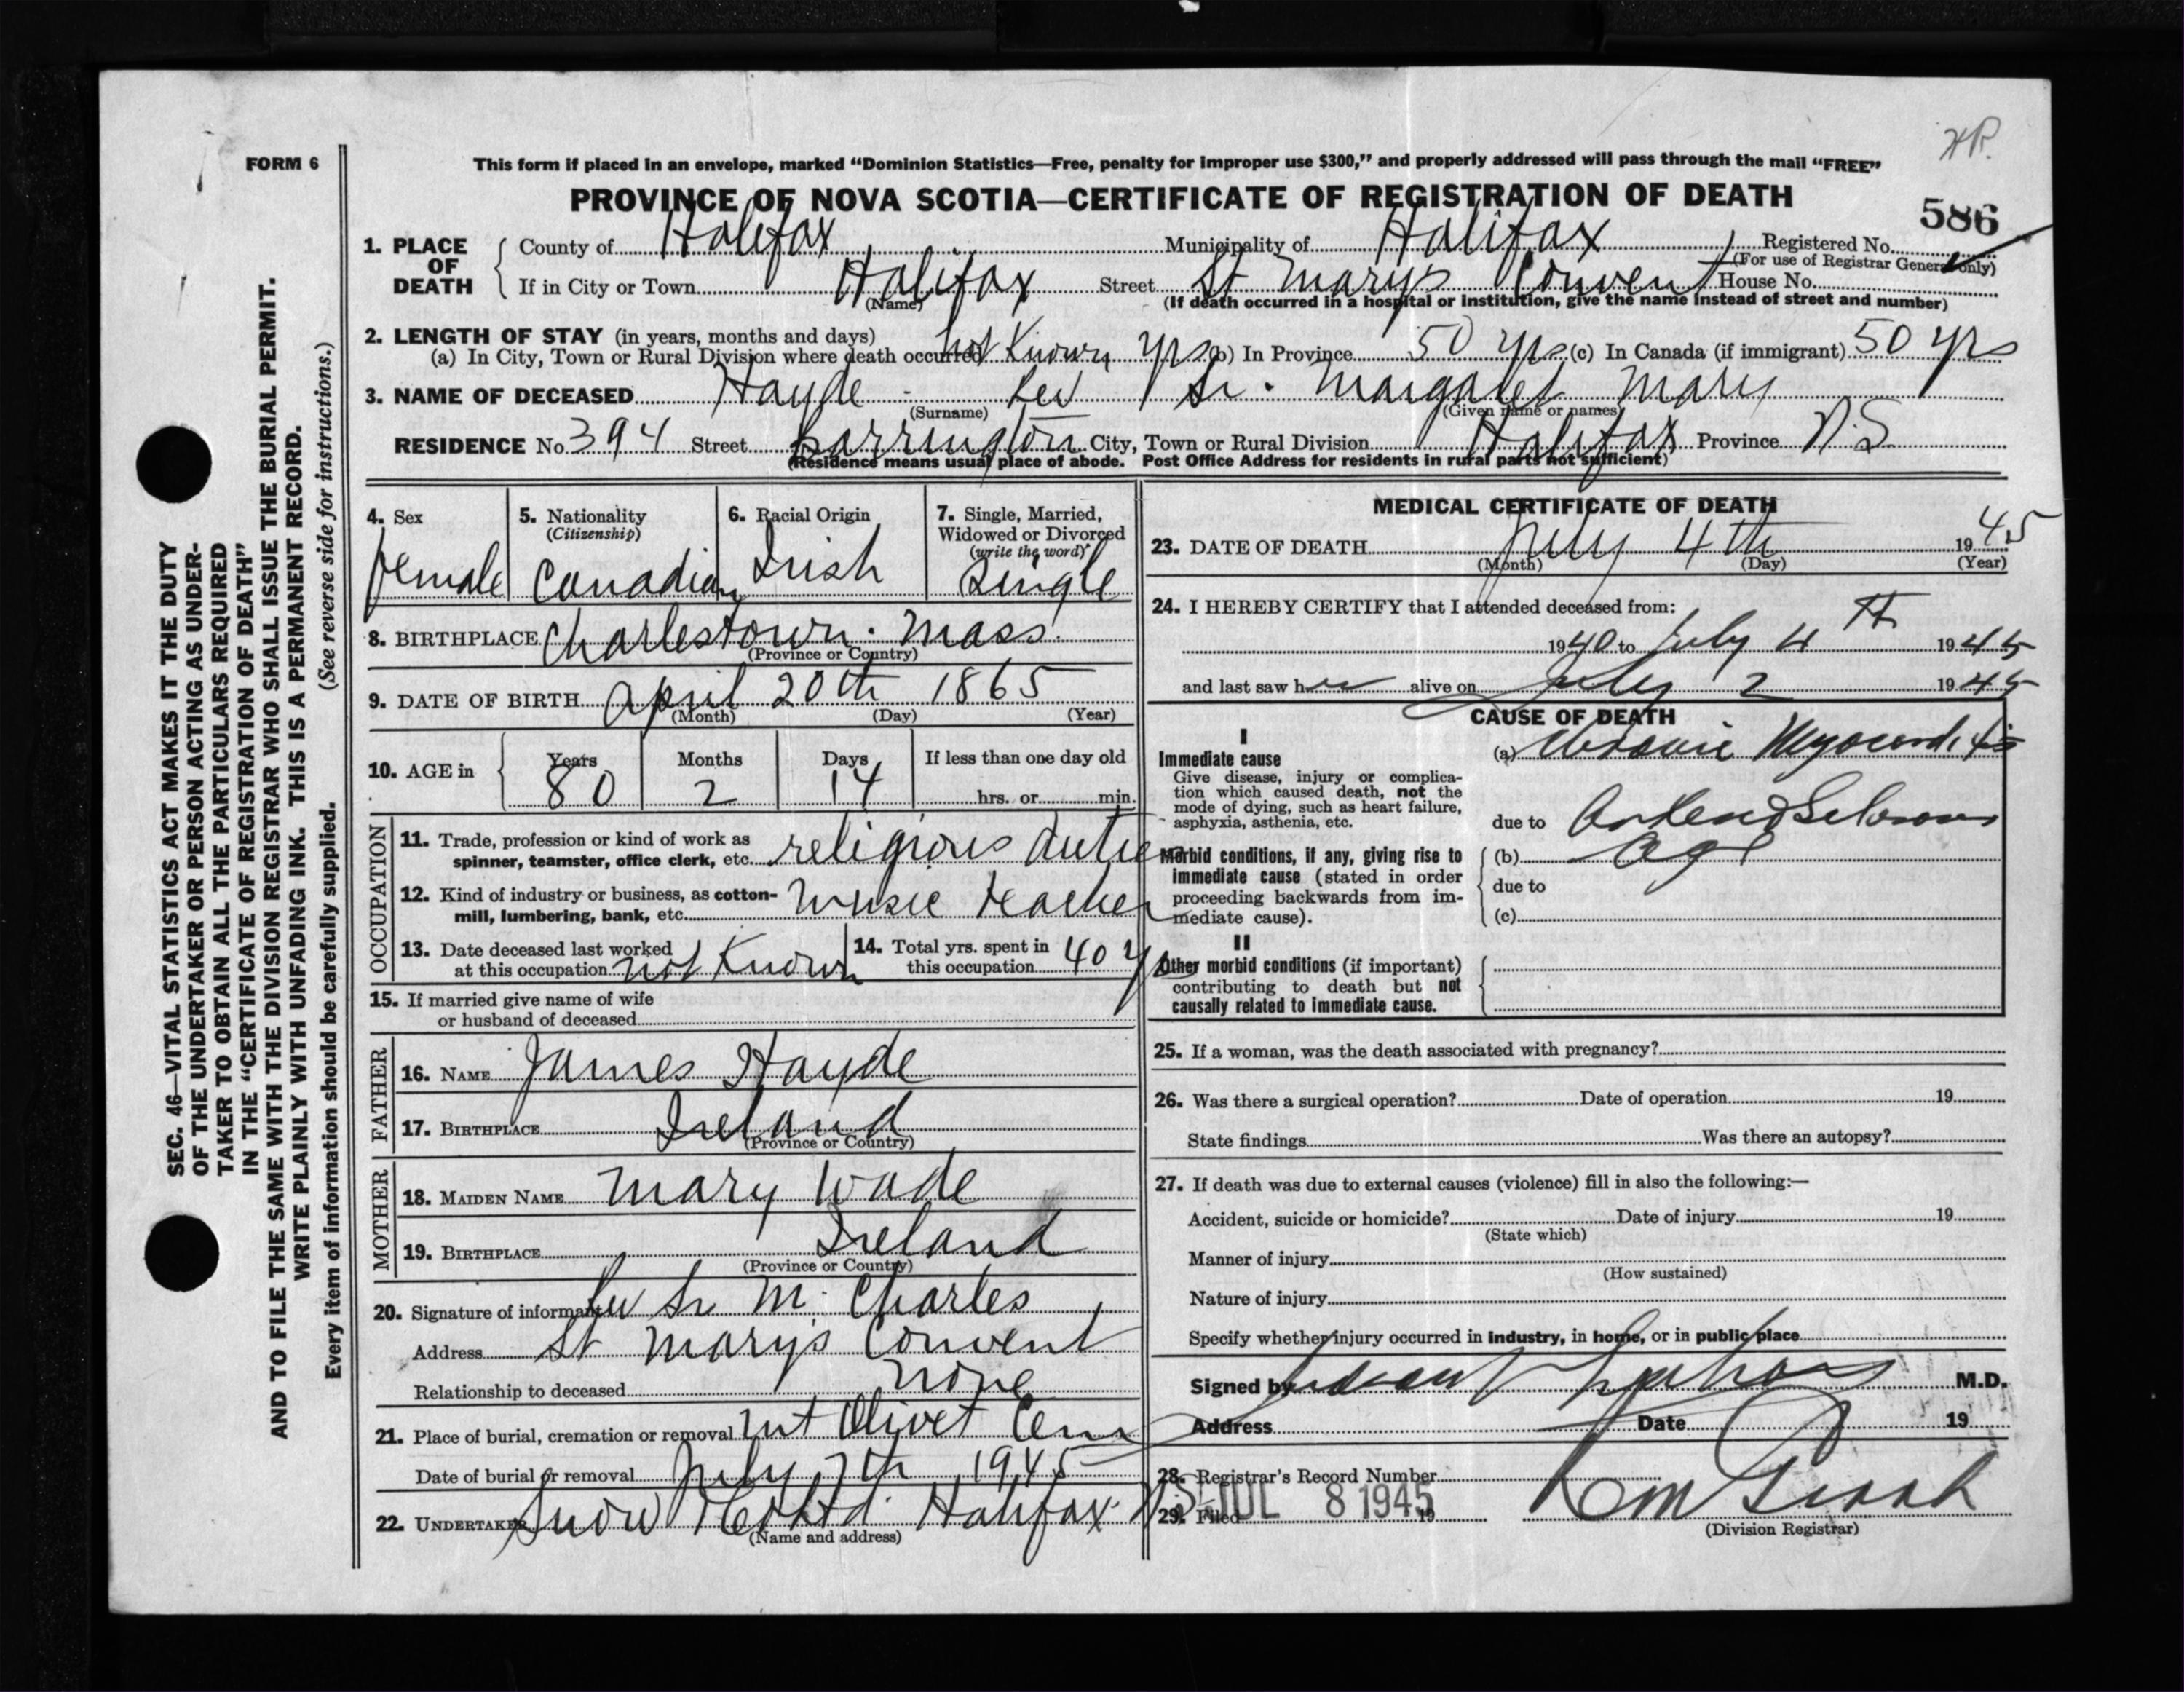 HP.
FORM 6
This form if placed in an envelope, marked “Dominion Statistics—Free, penalty for improper use $300,” and properly addressed will pass through the mail “FREE”
PROVINCE OF NOVA SCOTIA—CERTIFICATE OF REGISTRATION OF DEATH
586
1. PLACE OF DEATH County of Halifax Municipality of Halifax Registered No.
(For use of Registrar General only)
If in City or Town Halifax Street St Marys Convent House No.
(Name) (If death occurred in a hospital or institution, give the name instead of street and number)
2. LENGTH OF STAY (in years, months and days)
(a) In City, Town or Rural Division where death occurred not Known yrs (b) In Province 50 yrs (c) In Canada (if immigrant) 50 yrs
3. NAME OF DECEASED Hayde - Rev Sr. Margaret Mary
(Surname) (Given name or names)
RESIDENCE No. 394 Street Barrington City, Town or Rural Division Halifax Province N.S
(Residence means usual place of abode. Post Office Address for residents in rural parts not sufficient)
4. Sex 5. Nationality 6. Racial Origin 7. Single, Married,
(Citizenship) Widowed or Divorced
(write the word)
female Canadian Irish Single
8. BIRTHPLACE Charlestown. Mass.
(Province or Country)
9. DATE OF BIRTH April 20th 1865
(Month) (Day) (Year)
10. AGE in Years Months Days If less than one day old
80 2 14 hrs. or min.
OCCUPATION
11. Trade, profession or kind of work as
spinner, teamster, office clerk, etc. religious duties
12. Kind of industry or business, as cotton-
mill, lumbering, bank, etc. music teacher
13. Date deceased last worked
at this occupation not Known
14. Total yrs. spent in
this occupation 40 yrs
15. If married give name of wife
or husband of deceased
FATHER
16. NAME James Hayde
17. BIRTHPLACE Ireland
(Province or Country)
MOTHER
18. MAIDEN NAME Mary Wade
19. BIRTHPLACE Ireland
(Province or Country)
20. Signature of informant Rev Sr M. Charles
Address St Mary's Convent
Relationship to deceased none
21. Place of burial, cremation or removal Mt Olivet Cem
Date of burial or removal July 7th 1945
22. UNDERTAKER Snow & Co Ltd. Halifax N.S.
(Name and address)
MEDICAL CERTIFICATE OF DEATH
23. DATE OF DEATH July 4th 1945
(Month) (Day) (Year)
24. I HEREBY CERTIFY that I attended deceased from:
1940 to July 4th 1945
and last saw her alive on July 2 1945
CAUSE OF DEATH
I
Immediate cause
Give disease, injury or complica-
tion which caused death, not the
mode of dying, such as heart failure,
asphyxia, asthenia, etc.
(a) Chronic Myocarditis
due to
Morbid conditions, if any, giving rise to
immediate cause (stated in order
proceeding backwards from im-
mediate cause).
(b) age
due to
(c)
II
Other morbid conditions (if important)
contributing to death but not
causally related to immediate cause.
25. If a woman, was the death associated with pregnancy?
26. Was there a surgical operation? Date of operation 19
State findings Was there an autopsy?
27. If death was due to external causes (violence) fill in also the following:—
Accident, suicide or homicide? Date of injury 19
(State which)
Manner of injury
(How sustained)
Nature of injury
Specify whether injury occurred in industry, in home, or in public place
Signed by M.D.
Address Date 19
28. Registrar's Record Number
29. Filed JUL 8 1945 19
(Division Registrar)
SEC. 46—VITAL STATISTICS ACT MAKES IT THE DUTY
OF THE UNDERTAKER OR PERSON ACTING AS UNDER-
TAKER TO OBTAIN ALL THE PARTICULARS REQUIRED
IN THE “CERTIFICATE OF REGISTRATION OF DEATH”
AND TO FILE THE SAME WITH THE DIVISION REGISTRAR WHO SHALL ISSUE THE BURIAL PERMIT.
WRITE PLAINLY WITH UNFADING INK. THIS IS A PERMANENT RECORD.
Every item of information should be carefully supplied. (See reverse side for instructions.)